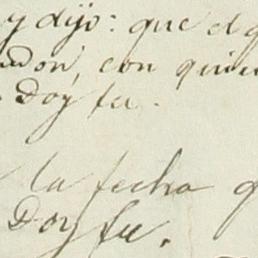 y dijo: que el
con quien
Doy fe.
la fecha
Doy fe.